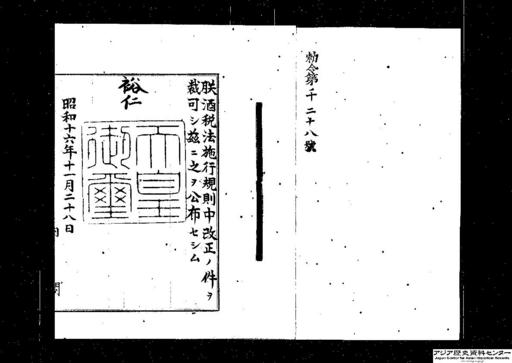 勅令第千二十八號
朕酒税法施行規則中改正ノ件ヲ
裁可シ茲ニ之ヲ公布セシム
裕仁
天皇御璽
昭和十六年十一月二十八日
アジア歴史資料センター
Japan Center for Asian Historical Records